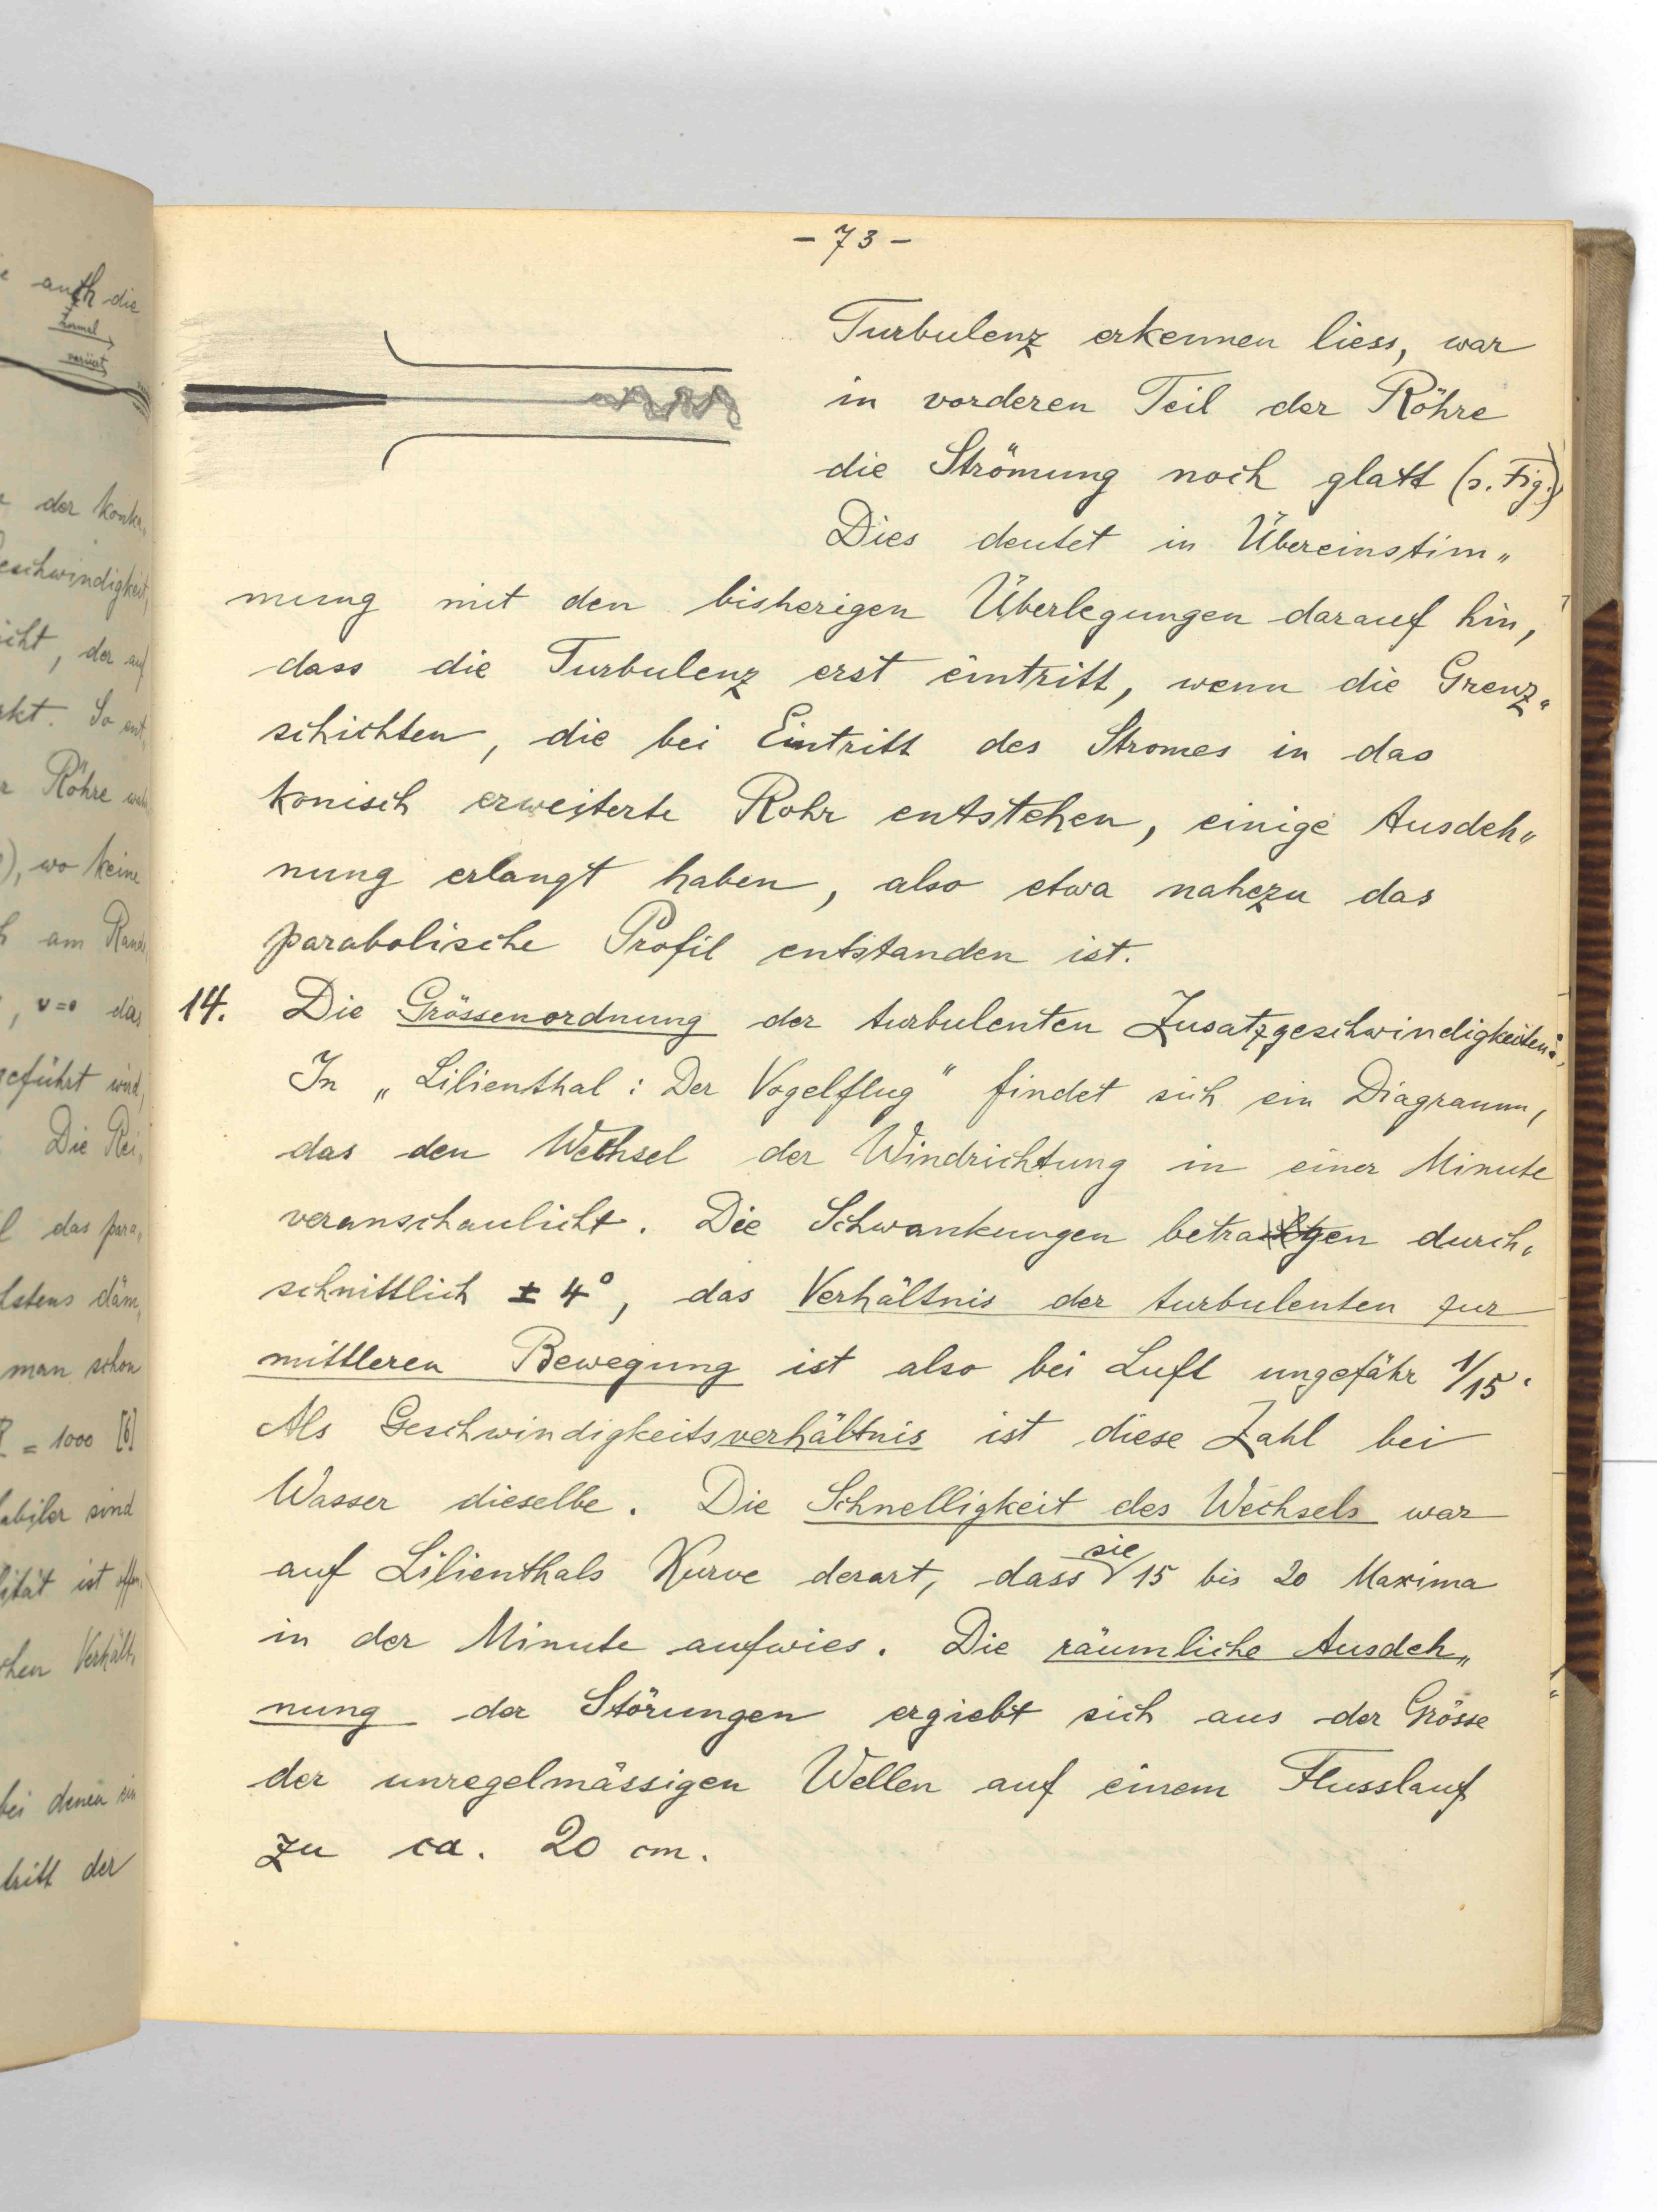 auch die
normal
variiert
der konka„
eschwindigkeit,
icht, der auf
rkt. So ent„
r Röhre
), wo keine
h am Rande
, v=0 das
geführt wird,
Die Rei„
l das para„
man schon
R = 1000 [6]
abiler sind
lität ist offen„
chen Verhält„
bei denen ein
tritt der
- 73 -
Turbulenz erkennen liess, war
in vorderen Teil der Röhre
die Strömung noch glatt (s. Fig.)
Dies deutet in Übereinstim„
mung mit den bisherigen Überlegungen darauf hin,
dass die Turbulenz erst eintritt, wenn die Grenz„
schichten, die bei Eintritt des Stromes in das
konisch erweiterte Rohr entstehen, einige Ausdeh„
nung erlangt haben, also etwa nahezu das
parabolische Profil entstanden ist.
14. Die Grössenordnung der turbulenten Zusatzgeschwindigkeiten:
In „Lilienthal: Der Vogelflug" findet sich ein Diagramm,
das den Wechsel der Windrichtung in einer Minute
veranschaulicht. Die Schwankungen betragen durch„
schnittlich ± 4°, das Verhältnis der turbulenten zur
mittleren Bewegung ist also bei Luft ungefähr 1/15.
Als Geschwindigkeitsverhältnis ist diese Zahl bei
Wasser dieselbe. Die Schnelligkeit des Wechsels war
auf Lilienthals Kurve derart, dass sie 15 bis 20 Maxima
in der Minute aufwies. Die räumliche Ausdeh„
nung der Störungen ergiebt sich aus der Grösse
der unregelmässigen Wellen auf einem Flusslauf
zu ca. 20 cm.